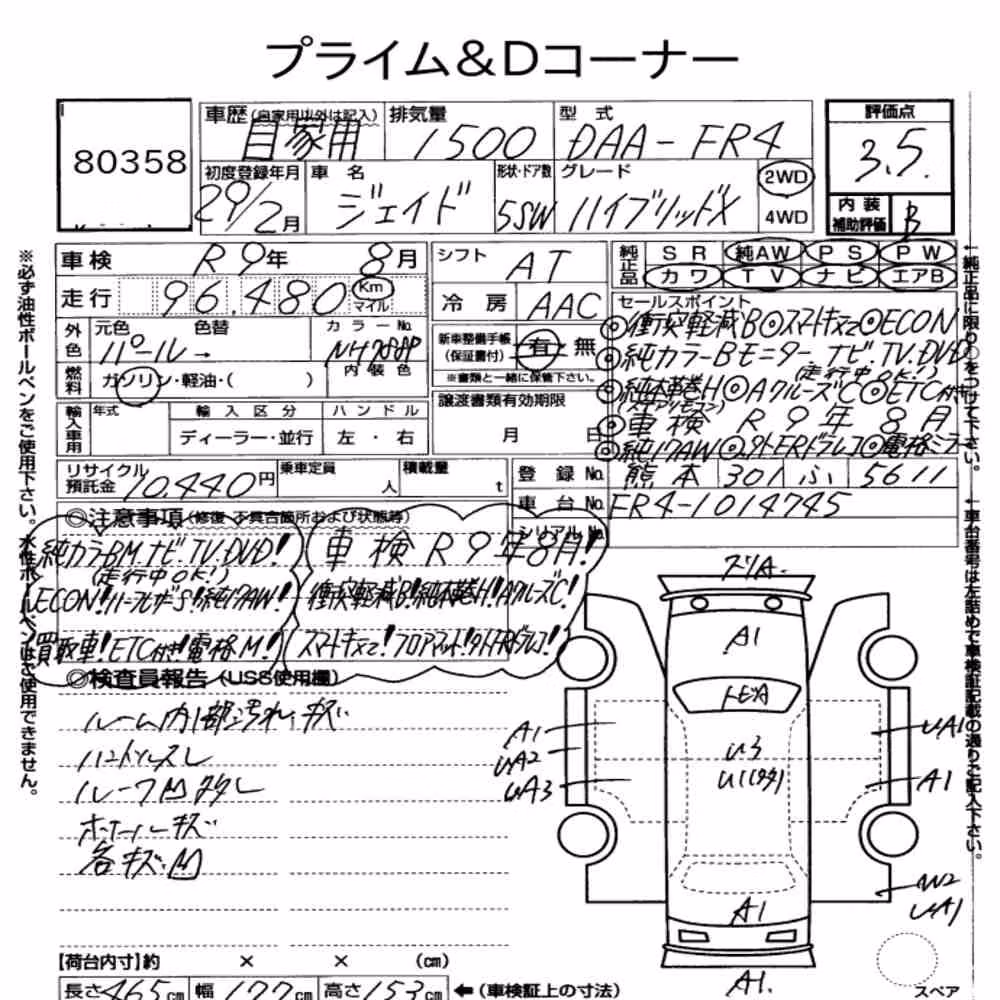 プライム&Dコーナー
80358
車歴(自家用以外は記入) 排気量 型 式 評価点
自家用 1500 DAA-FR4 3.5.
初度登録年月 車 名 形状・ドア数 グレード 2WD
29/2月 ジェイド 5SW ハイブリッドX 4WD
内 装
補助評価 B
車検 R9年 8月 シフト AT 純正品 SR 純AW PS PW
走行 96.480 Km マイル 冷 房 AAC カワ TV ナビ エアB
セールスポイント
外色 元色 色替 カラーNo. 新車整備手帳(保証書付) 有・無
パール→ NH788P
内装色
燃料 ガソリン・軽油・( ) ※書類と一緒に保管下さい。
◎衝突軽減B◎スマートキー2◎ECON
◎純カラーBモニターナビ.TV.DVD
(走行中OK!)
◎純本革巻H◎AクルーズC◎ETC付
◎車検 R9年8月
◎純17AW◎外FRドラレコ◎電格ミラー
輸入車用 年式 輸入区分 ハンドル 譲渡書類有効期限
ディーラー・並行 左・右 月 日
リサイクル預託金 10,440円 乗車定員 人 積載量 t 登録No. 熊本 301 ふ 5611
車台No. FR4-1014745
シリアルNo.
◎注意事項(修復、不具合箇所および状態等)
純カラーBM.ナビ.TV.DVD! 車検R9年8月!
(走行中OK!)
ECON!ハーフレザーS!純17AW! 衝突軽減B!純本革巻H!AクルーズC!
買取車!ETC付!電格M! スマートキー2!フロアマット!外FRドラレコ!
◎検査員報告(USS使用欄)
ルーム内部汚れ、キズ
ハンドルスレ
ルーフM多し
ホイールキズ
各キズ、M
A1
A1
UA2
UA3
U3
U1(多数)
UA1
A1
W2
UA1
A1
A1.
スペア
【荷台内寸】約 × × (cm)
長さ465cm 幅177cm 高さ153cm ←(車検証上の寸法)
※必ず油性ボールペンをご使用下さい。水性ボールペンはご使用できません。
←純正品に限り○をつけて下さい。
←車台番号は左詰めで車検証記載の通りご記入下さい。